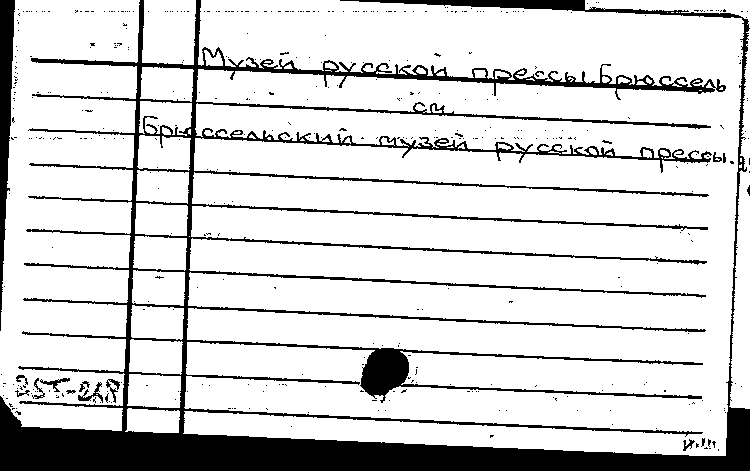 Музей русской прессы. Брюссель
см.
Брюссельский музей русской прессы.